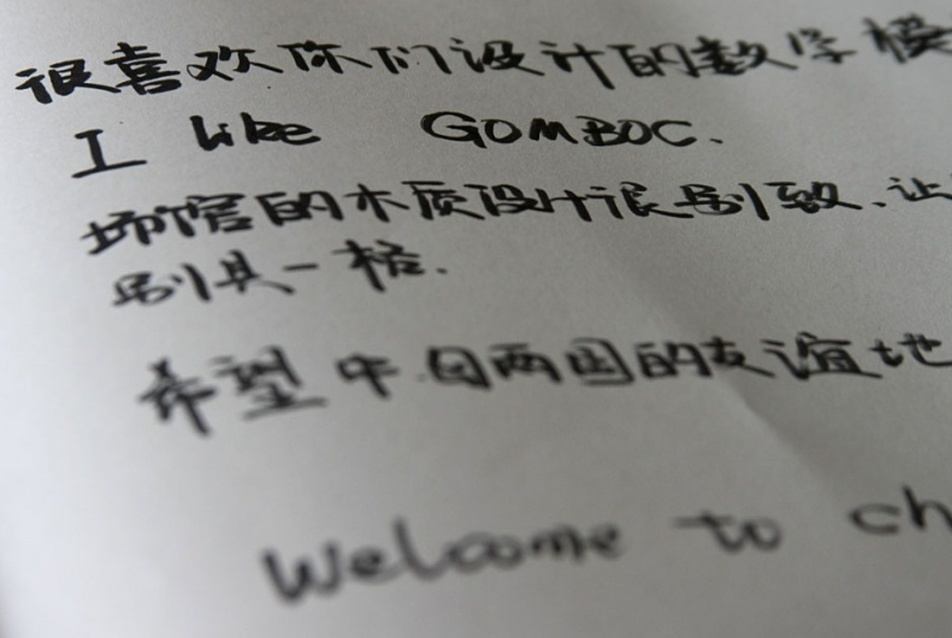 很喜欢你们设计的数学模
I like GOMBOC.
场馆的木质设计很别致、让
别具一格.
希望中匈两国的友谊地
Welcome to ch